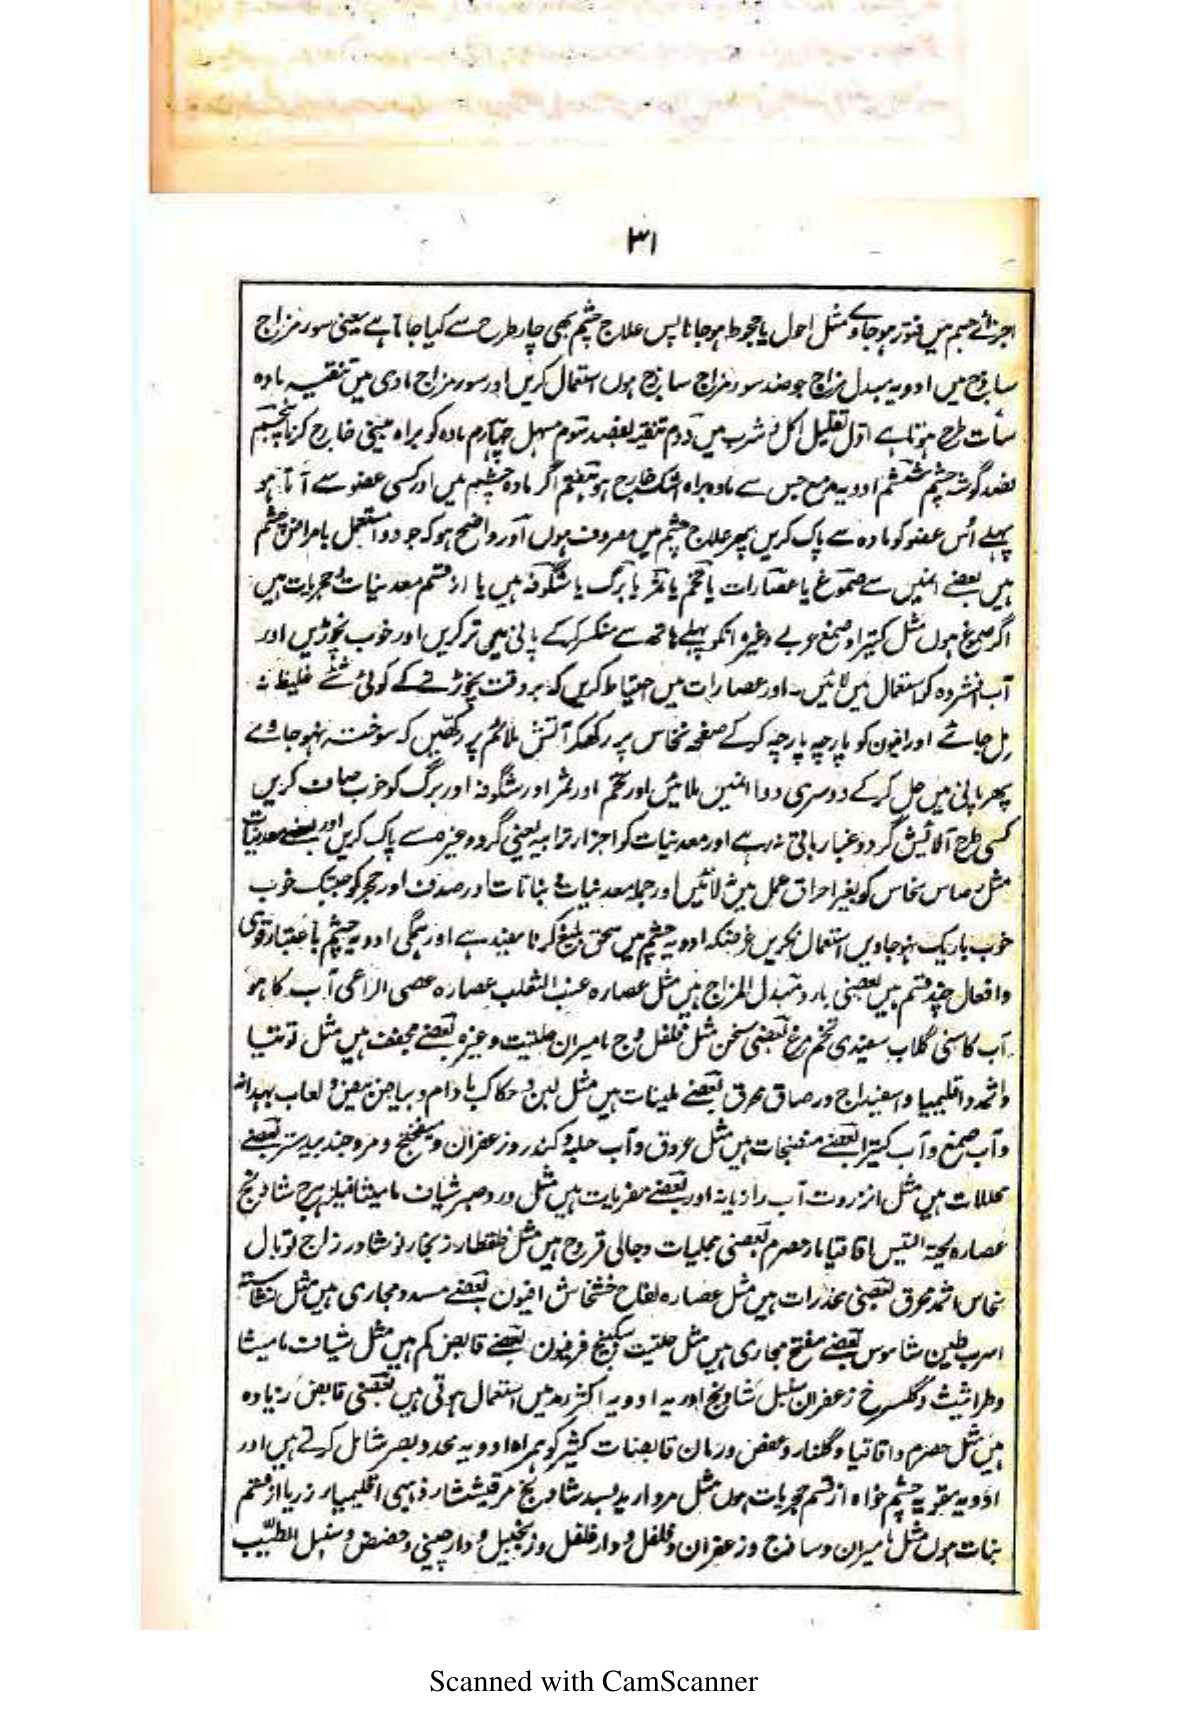 ۳۱
اجزائے جسم میں فتور ہوجاوے مثل احول یا جحوط ہوجانا پس علاج چشم بھی چار طرح سے کیا جاتا ہے یعنی سور مزاج
ساذج میں ادویہ مبدل مزاج جو ضد سور مزاج ساذج ہوں استعمال کریں اور سور مزاج مادی میں تنقیہ مادہ
سات طرح ہوتا ہے اول تقلیل اکل و شرب میں دوم تنقیہ بفصد سوم مسہل چہارم مادہ کو براہ بینی خارج کرنا پنجم
فصد گوشہ چشم ششم ادویہ مدمع جس سے مادہ براہ اشک خارج ہو ہفتم اگر مادہ چشم میں اور کسی عضو سے آتا ہو
پہلے اُس عضو کو مادہ سے پاک کریں پھر علاج چشم میں مصروف ہوں اور واضح ہو کہ جو دوا مستعمل بامراض چشم
ہیں بعضے انمیں سے صموغ یا عصارات یا تخم یا ثمر یا برگ یا شگوفہ ہیں یا از قسم معدنیات و حجریات ہیں
اگر صموغ ہوں مثل کتیرا و صمغ عربے وغیرہ انکو پہلے ہاتھ سے منکسر کرکے پانی میں تر کریں اور خوب نچوڑیں اور
آب افشردہ کو استعمال میں لائیں۔ اور عصارات میں احتیاط کریں کہ بروقت نچوڑنے کے کوئی شئے غلیظ نہ
مل جائے اور افیون کو پارچہ پارچہ کرکے صفحہ نحاس پر رکھکر آتش ملائم پر رکھیں کہ سوختہ نہو جاوے
پھر پانی میں حل کرکے دوسری دوا انمیں ملائیں اور تخم اور ثمر اور شگوفہ اور برگ کو خوب صاف کریں
کسی طرح آلائیش گرد و غبار باقی نہ رہے اور معدنیات کو اجزار ترابیہ یعنی گرد وغیرہ سے پاک کریں اور بعضے معدنیات
مثل رصاس نحاس کو بغیر احراق عمل میں نہ لائیں اور جملہ معدنیات و نباتات اور صدف اور حجر کو جبتک خوب
خوب باریک نہو جاویں استعمال نکریں غرضکہ ادویہ چشم میں سحق بلیغ کرنا مفید ہے اور ہمگی ادویہ چشم باعتبار قویٰ
و افعال چند قسم ہیں بعضی بارد مبدل المزاج ہیں مثل عصارہ عنب الثعلب عصارہ عصی الراعی آب کاہو
آب کاسنی گلاب سفیدی تخم مرغ بعضی مسخن مثل فلفل وج مامیران حلتیت وغیرہ بعضے مجفف ہیں مثل توتیا
و اثمد و اقلیمیا و اسفیداج و رصاق محرق بعضے ملینات ہیں مثل لبن و حکاک بادام و بیاض بیض و لعاب بہدانہ
و آب صمغ و آب کتیرا بعضے منضجات ہیں مثل عروق و آب حلبہ و کندر و زعفران و میفختج و مر و جندبیدستر بعضے
محللات ہیں مثل انزروت آب رازیانہ اور بعضے مغریات ہیں مثل ورد صبر شیاف مامیثا فیلزہرج شادنج
عصارہ لحیۃ التیس اقاقیا ماز حصرم بعضی مجلیات و جالی قروح ہیں مثل قلقطار زنجار نوشادر زاج توبال
نحاس اثمد محرق بعضی مخدرات ہیں مثل عصارہ لفاح خشخاش افیون بعضے مسدد مجاری ہیں مثل نشاستہ
اسرب طین شاموس بعضے مفتح مجاری ہیں مثل حلتیت سکبینج فرفیون بعضے قابض کم ہیں مثل شیاف مامیثا
و طراثیث و گلسرخ زعفران سنبل شادنج اور یہ ادویہ اکثر رمد میں استعمال ہوتی ہیں بعضی قابض زیادہ
ہیں مثل حصرم و اقاقیا و گلنار و عفص و رمان قابضات کثیر کو ہمراہ ادویہ محدد بصر شامل کرتے ہیں اور
ادویہ مقویہ چشم خواہ از قسم حجریات ہوں مثل مروارید بسد شادنج مرقشیشار ذہبی اقلیمیار زریا از قسم
نبات ہوں مثل مامیران و ساذج و زعفران و فلفل و دارفلفل و زنجبیل و دارچینی و حضض و سنبل الطیب
Scanned with CamScanner